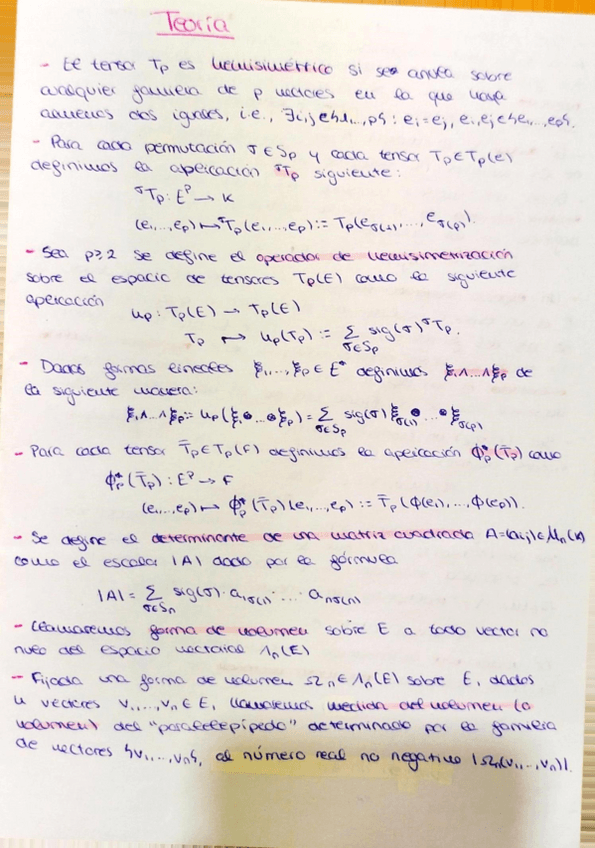 Teoría
- El tensor Tp es hemisimétrico si se anula sobre
cualquier familia de p vectores en la que haya
al menos dos iguales, i.e., ∃i,j∈{1,...,p}: ei=ej, ei,ej∈{e1,...,ep}.
- Para cada permutación σ∈Sp y cada tensor Tp∈Tp(E)
definimos la aplicación σTp siguiente:
σTp: E^p → K
(e1,...,ep) ↦ σTp(e1,...,ep) := Tp(eσ(1),...,eσ(p)).
- Sea p≥2 se define el operador de hemisimetrización
sobre el espacio de tensores Tp(E) como la siguiente
aplicación
hp: Tp(E) → Tp(E)
Tp ↦ hp(Tp) := ∑σ∈Sp sig(σ) σTp.
- Dadas formas lineales ξ1,...,ξp∈E* definimos ξ1∧...∧ξp de
la siguiente manera:
ξ1∧...∧ξp := hp(ξ1⊗...⊗ξp) = ∑σ∈Sp sig(σ) ξσ(1)⊗...⊗ξσ(p)
- Para cada tensor T̄p∈Tp(F) definimos la aplicación ϕ*p(T̄p) como
ϕ*p(T̄p): E^p → F
(e1,...,ep) ↦ ϕ*p(T̄p)(e1,...,ep) := T̄p(ϕ(e1),...,ϕ(ep)).
- Se define el determinante de una matriz cuadrada A=(aij)∈Mn(K)
como el escalar |A| dado por la fórmula
|A| = ∑σ∈Sn sig(σ)·a1σ(1)·...·anσ(n)
- Llamaremos forma de volumen sobre E a todo vector no
nulo del espacio vectorial Λn(E)
- Fijada una forma de volumen Ωn∈Λn(E) sobre E, dados
n vectores v1,...,vn∈E, llamaremos medida del volumen (o
volumen) del "paralelepípedo" determinado por la familia
de vectores {v1,...,vn}, al número real no negativo |Ωn(v1,...,vn)|.